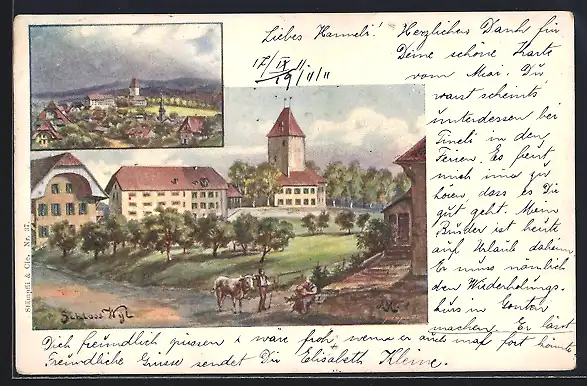 Liebes Hanneli! Herzlichen Dank für
17/IX 11
19/11/11
Deine schöne Karte
vom Mai. Du
warst scheints
unterdessen bei
Tineli in den
Ferien. Es freut
mich immer zu
hören, dass es Dir
gut geht. Mein
Bruder ist heute
auf Urlaub daheim
Er muss nämlich
den Wiederholungs-
kurs in
machen. Er lässt
Dich freundlich grüssen & wäre froh, wenn er auch mal fort könnte
Freundliche Grüsse sendet Dir Elisabeth Kleine.
Schloss Wyl
Stämpfli & Cie. Nr. 37.